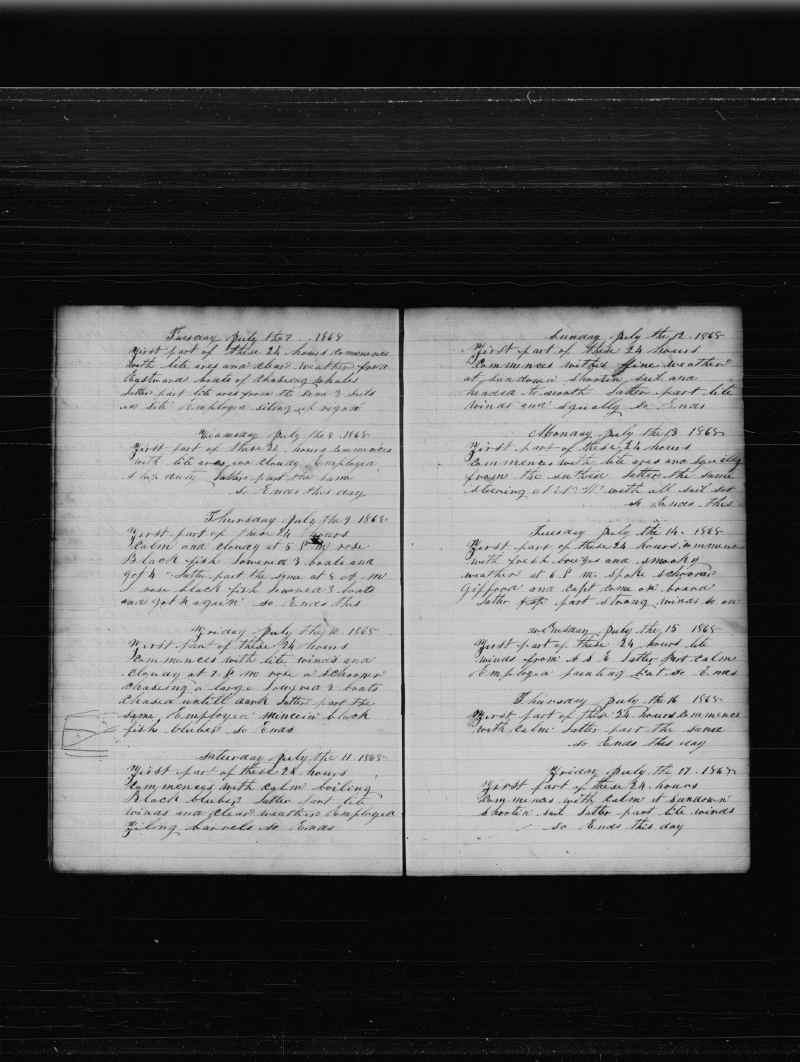 Tuesday July the 7 . 1868
First part of these 24 hours commences
with lite ares and clear weather
Eastward boats of chaseing whales
latter part lite ares from the same 3 sails
in site Employed siting up rigon
July the 8 . 1868
First part of these 24 hours commences
with lite ares and cloudy Employed
latter part the same
so Ends this day
Thursday July the 9 1868
First part of these 24 hours
Calm and cloudy at 5 P M rose
Black fish lowered 3 boats and
got 4 latter part the same at 8 A. M
rose black fish lowered 3 boats
and got 4 again so Ends this
Friday July the 10 . 1868
First part of these 24 hours
Commences with lite winds and
cloudy at 7 P M rose a schooner
chaseing a large lowered 3 boats
Chased untill dark latter part the
same Employed mencein black
fish bluber so Ends
Saturday July the 11 . 1868
First part of these 24 hours
Commences with calm boiling
Black bluber latter part lite
winds and clear weather Employed
Filing barrels so Ends
Sunday July the 12 . 1868
First part of these 24 hours
Commences with fine weather
at sundown shorten sail and
headed to latter part lite
winds and squally so Ends
Monday July the 13 1868
First part of these 24 hours
Commences with lite ares and squally
from the suthed latter the same
steering with all sail set
so Ends this
Tuesday July the 14 . 1868
First part of these 24 hours commences
with fresh brezes and smoaky
weather at 6 P M. spoke schooner
Gifford and capt came on board
latter part strong winds so en
wednesday July the 15 1868
First part of these 24 hours lite
winds from S S E latter part calm
Employed painting bot so Ends
Thursday July the 16 1868
First part of this 24 hours commences
with calm latter part the same
so Ends this day
Friday July the 17 . 1868
First part of these 24 hours
Commences with calm at sundown
shortin sail latter part lite winds
so Ends this day